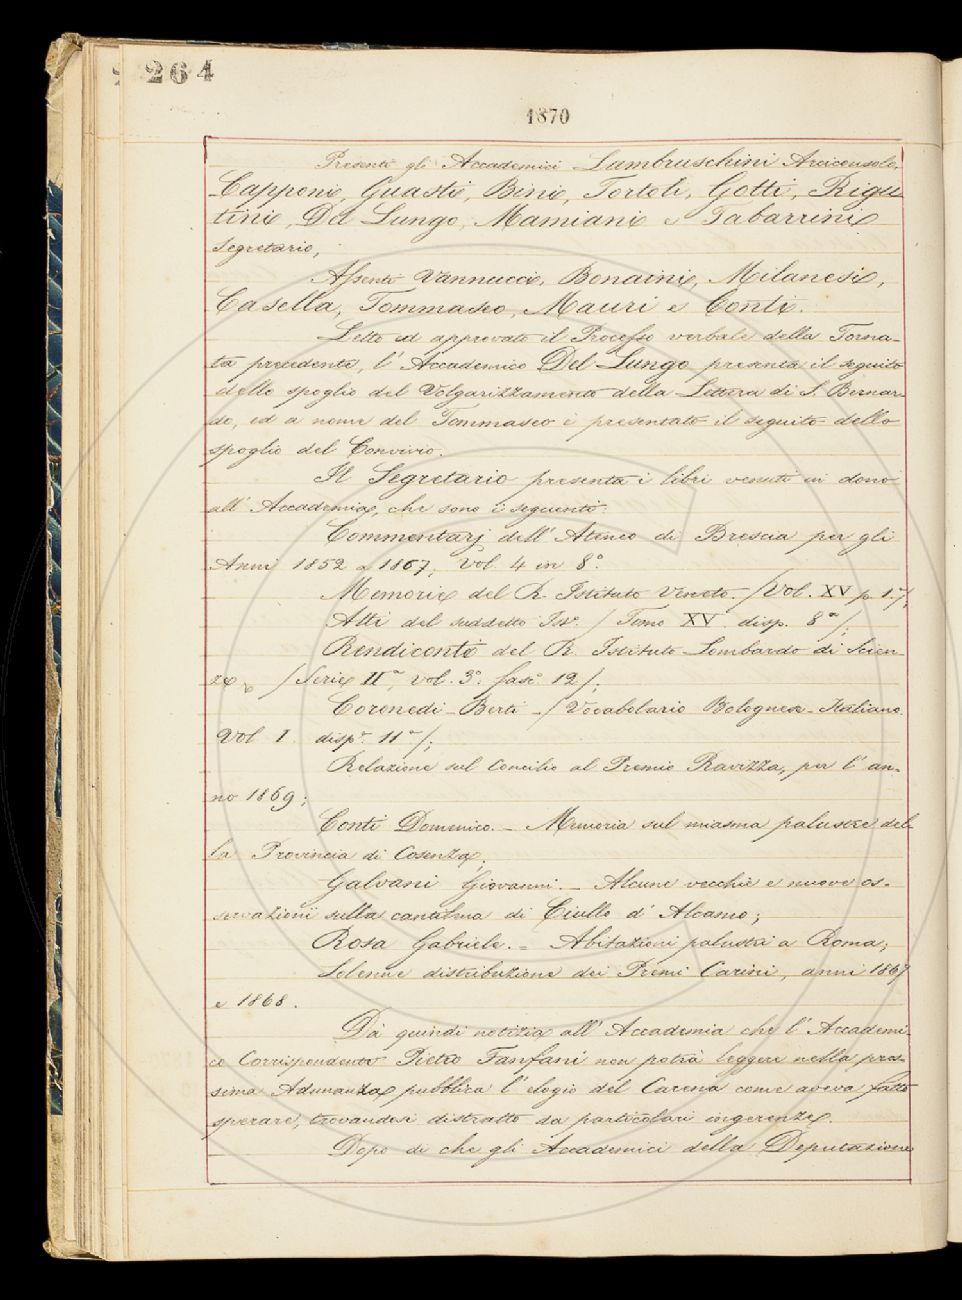 264
1870
Presenti gli Accademici Lambruschini Arciconsolo,
Capponi, Guasti, Bini, Tortoli, Gotti, Rigu-
tini, Del Lungo, Mamiani e Tabarrini
Segretario;
Assenti Vannucci, Bonaini, Milanesi,
Casella, Tommaseo, Mauri e Conti.
Letto ed approvato il Processo verbale della Torna-
ta precedente, l'Accademico Del Lungo presenta il seguito
dello spoglio del Volgarizzamento della Lettera di S. Bernar-
do, ed a nome del Tommaseo è presentato il seguito dello
spoglio del Convivio.
Il Segretario presenta i libri venuti in dono
all'Accademia, che sono i seguenti.
Commentarj dell'Ateneo di Brescia per gli
Anni 1852 a 1867, Vol. 4 in 8.°
Memorie del R. Istituto Veneto. / Vol. XV p. 1.ª/;
Atti del suddetto Ist.º / Tomo XV disp. 8.ª /;
Rendiconti del R. Istituto Lombardo di Scien-
ze / Serie II.ª, vol. 3.° fasc.° 12 /;
Coronedi Berti - / Vocabolario Bolognese-Italiano
Vol I. disp.ª 11.ª /;
Relazione sul Concilio al Premio Ravizza, per l'an-
no 1869;
Conti Domenico. - Memoria sul miasma palustre del-
la Provincia di Cosenza;
Galvani Giovanni. - Alcune vecchie e nuove os-
servazioni sulla cantilena di Ciullo d'Alcamo;
Rosa Gabriele. - Abitazioni palustri a Roma;
Solenne distribuzione dei Premi Carini, anni 1867
e 1868.
Dà quindi notizia all'Accademia che l'Accademi-
co Corrispondente Pietro Fanfani non potrà leggere nella pros-
sima Adunanza pubblica l'elogio del Carena come aveva fatto
sperare, trovandosi distratto da particolari ingerenze.
Dopo di che gli Accademici della Deputazione